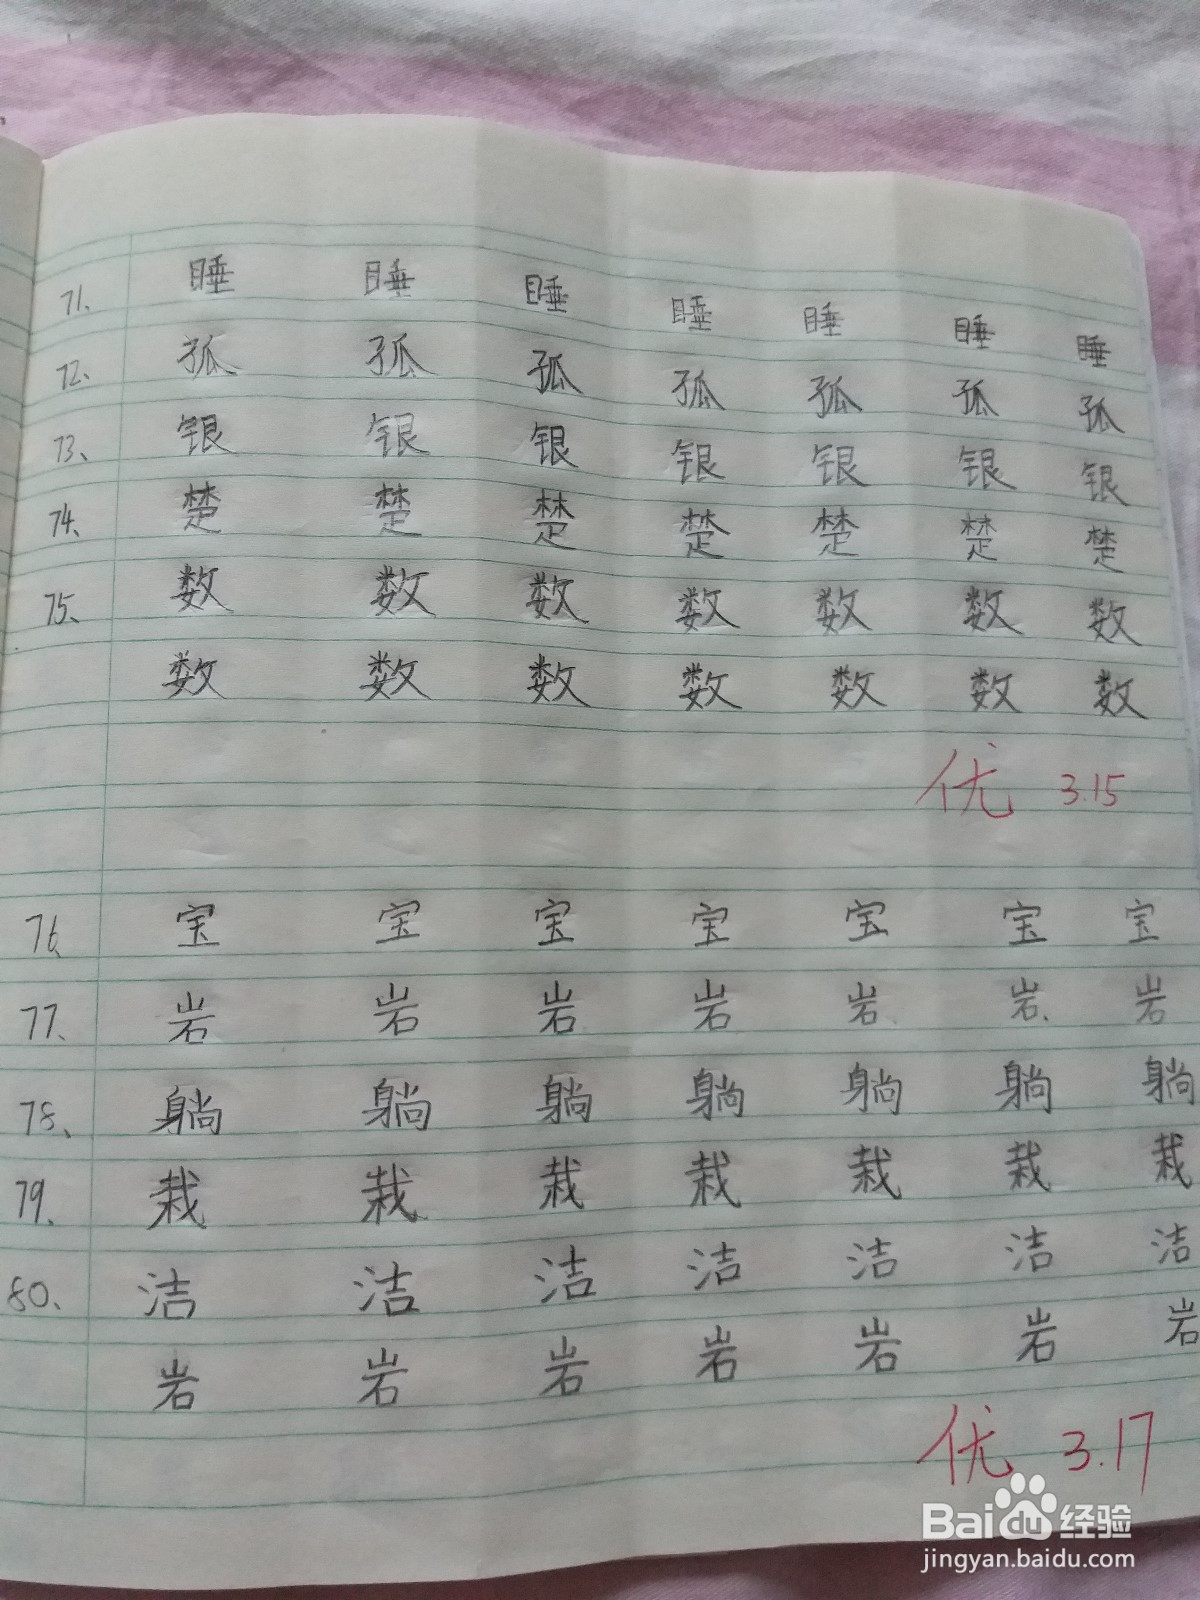 71、 睡 睡 睡 睡 睡 睡 睡
72、 孤 孤 孤 孤 孤 孤 孤
73、 银 银 银 银 银 银 银
74、 楚 楚 楚 楚 楚 楚 楚
75、 数 数 数 数 数 数 数
数 数 数 数 数 数 数
优 3.15
76、 宝 宝 宝 宝 宝 宝 宝
77、 岩 岩 岩 岩 岩 岩、 岩
78、 躺 躺 躺 躺 躺 躺 躺
79、 栽 栽 栽 栽 栽 栽 栽
80、 洁 洁 洁 洁 洁 洁 洁
岩 岩 岩 岩 岩 岩 岩
优 3.17
Baidu 经验
jingyan.baidu.com